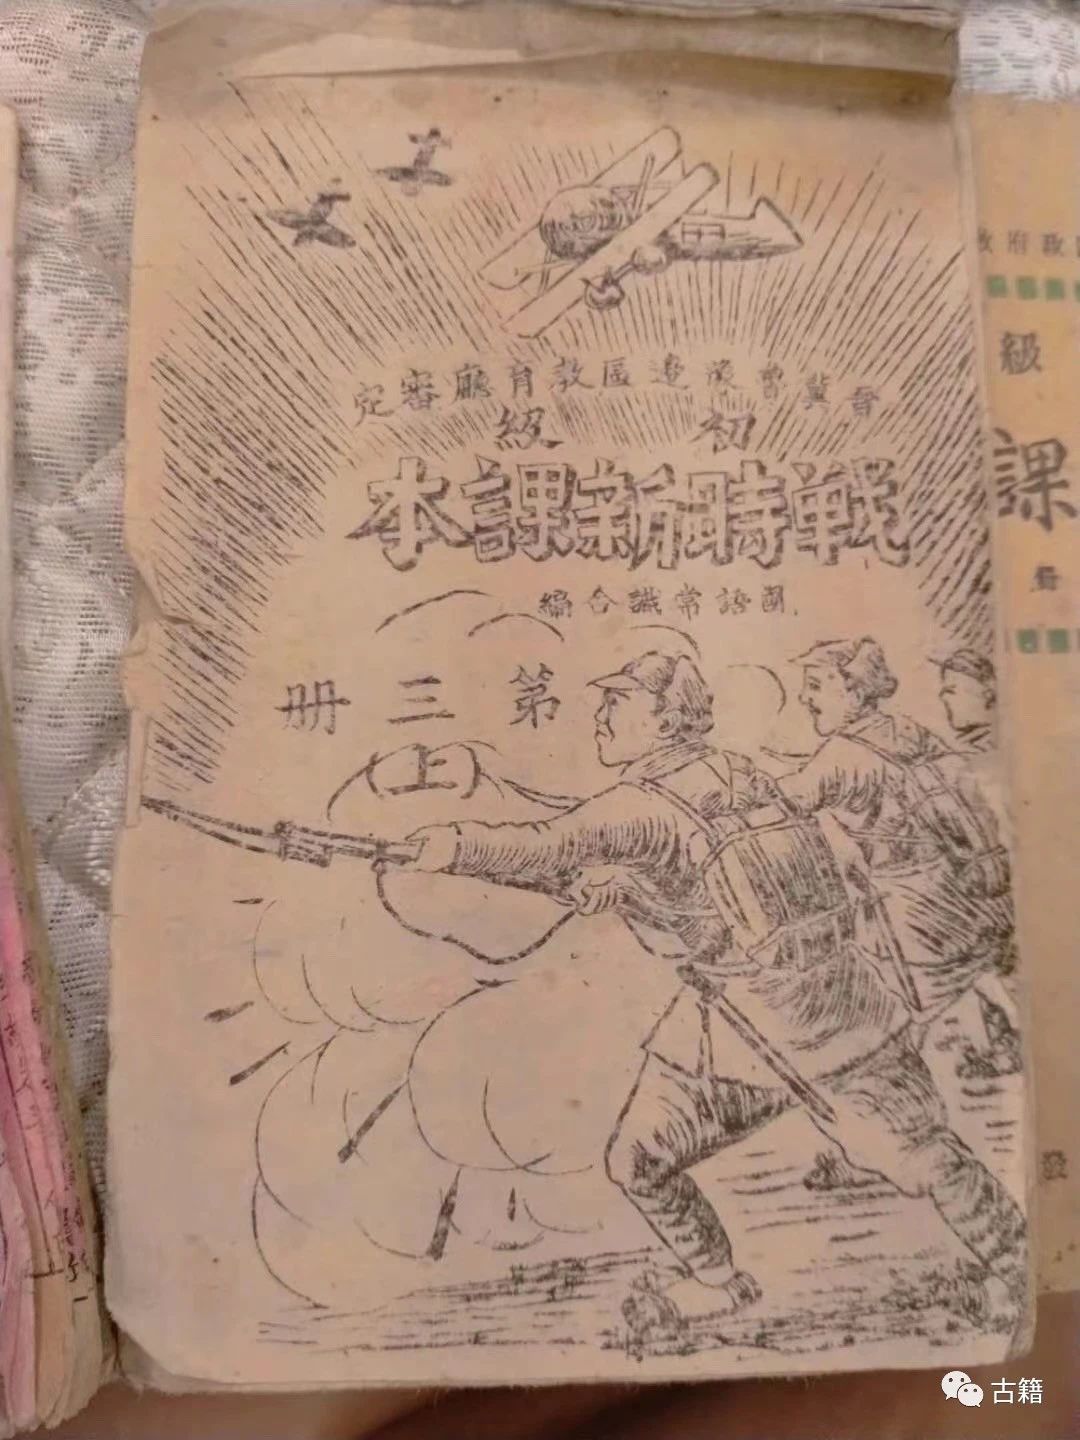 晉冀魯豫邊區教育廳審定
初級
戰時新課本
國語常識合編
第三冊
(上)
政府
級
課
冊
發
古籍